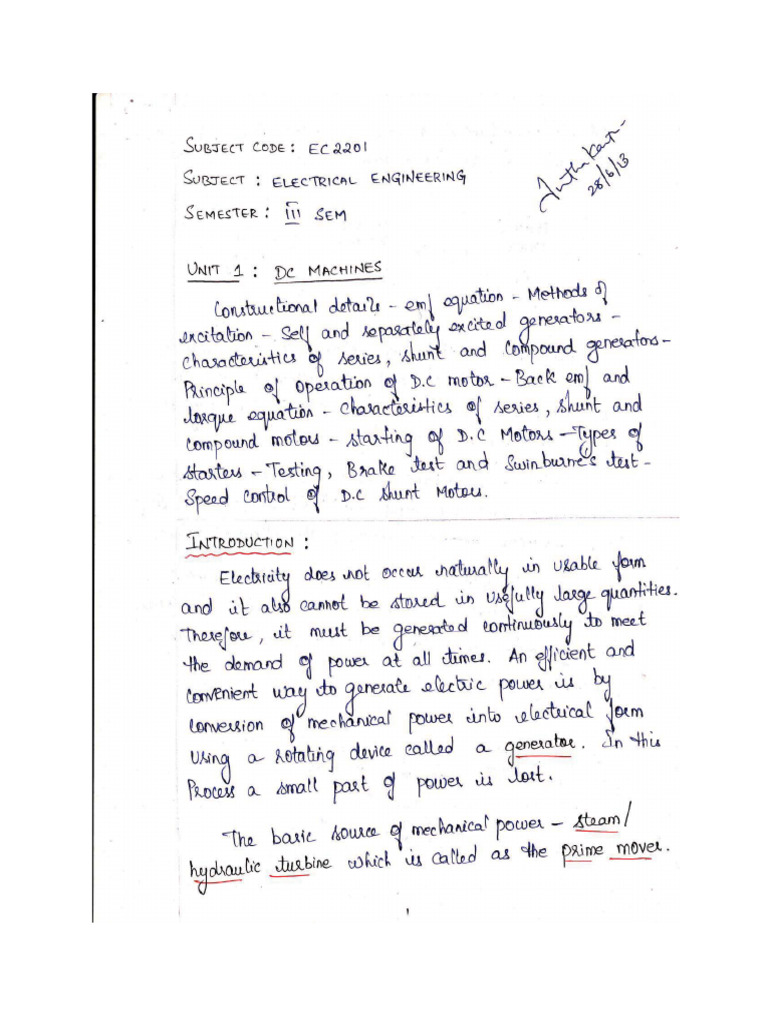 SUBJECT CODE: EC2201
SUBJECT : ELECTRICAL ENGINEERING
SEMESTER : III SEM
28/6/13
UNIT 1 : DC MACHINES
Constructional details - emf equation - Methods of
excitation - Self and separately excited generators -
characteristics of series, shunt and compound generators -
Principle of operation of D.C motor - Back emf and
torque equation - characteristics of series, shunt and
compound motors - starting of D.C Motors - Types of
starters - Testing, Brake test and Swinburne's test -
Speed control of D.C shunt Motors.
INTRODUCTION :
Electricity does not occur naturally in usable form
and it also cannot be stored in usefully large quantities.
Therefore, it must be generated continuously to meet
the demand of power at all times. An efficient and
convenient way to generate electric power is by
conversion of mechanical power into electrical form
using a rotating device called a generator. In this
Process a small part of power is lost.
The basic source of mechanical power - steam/
hydraulic turbine which is called as the prime mover.
1